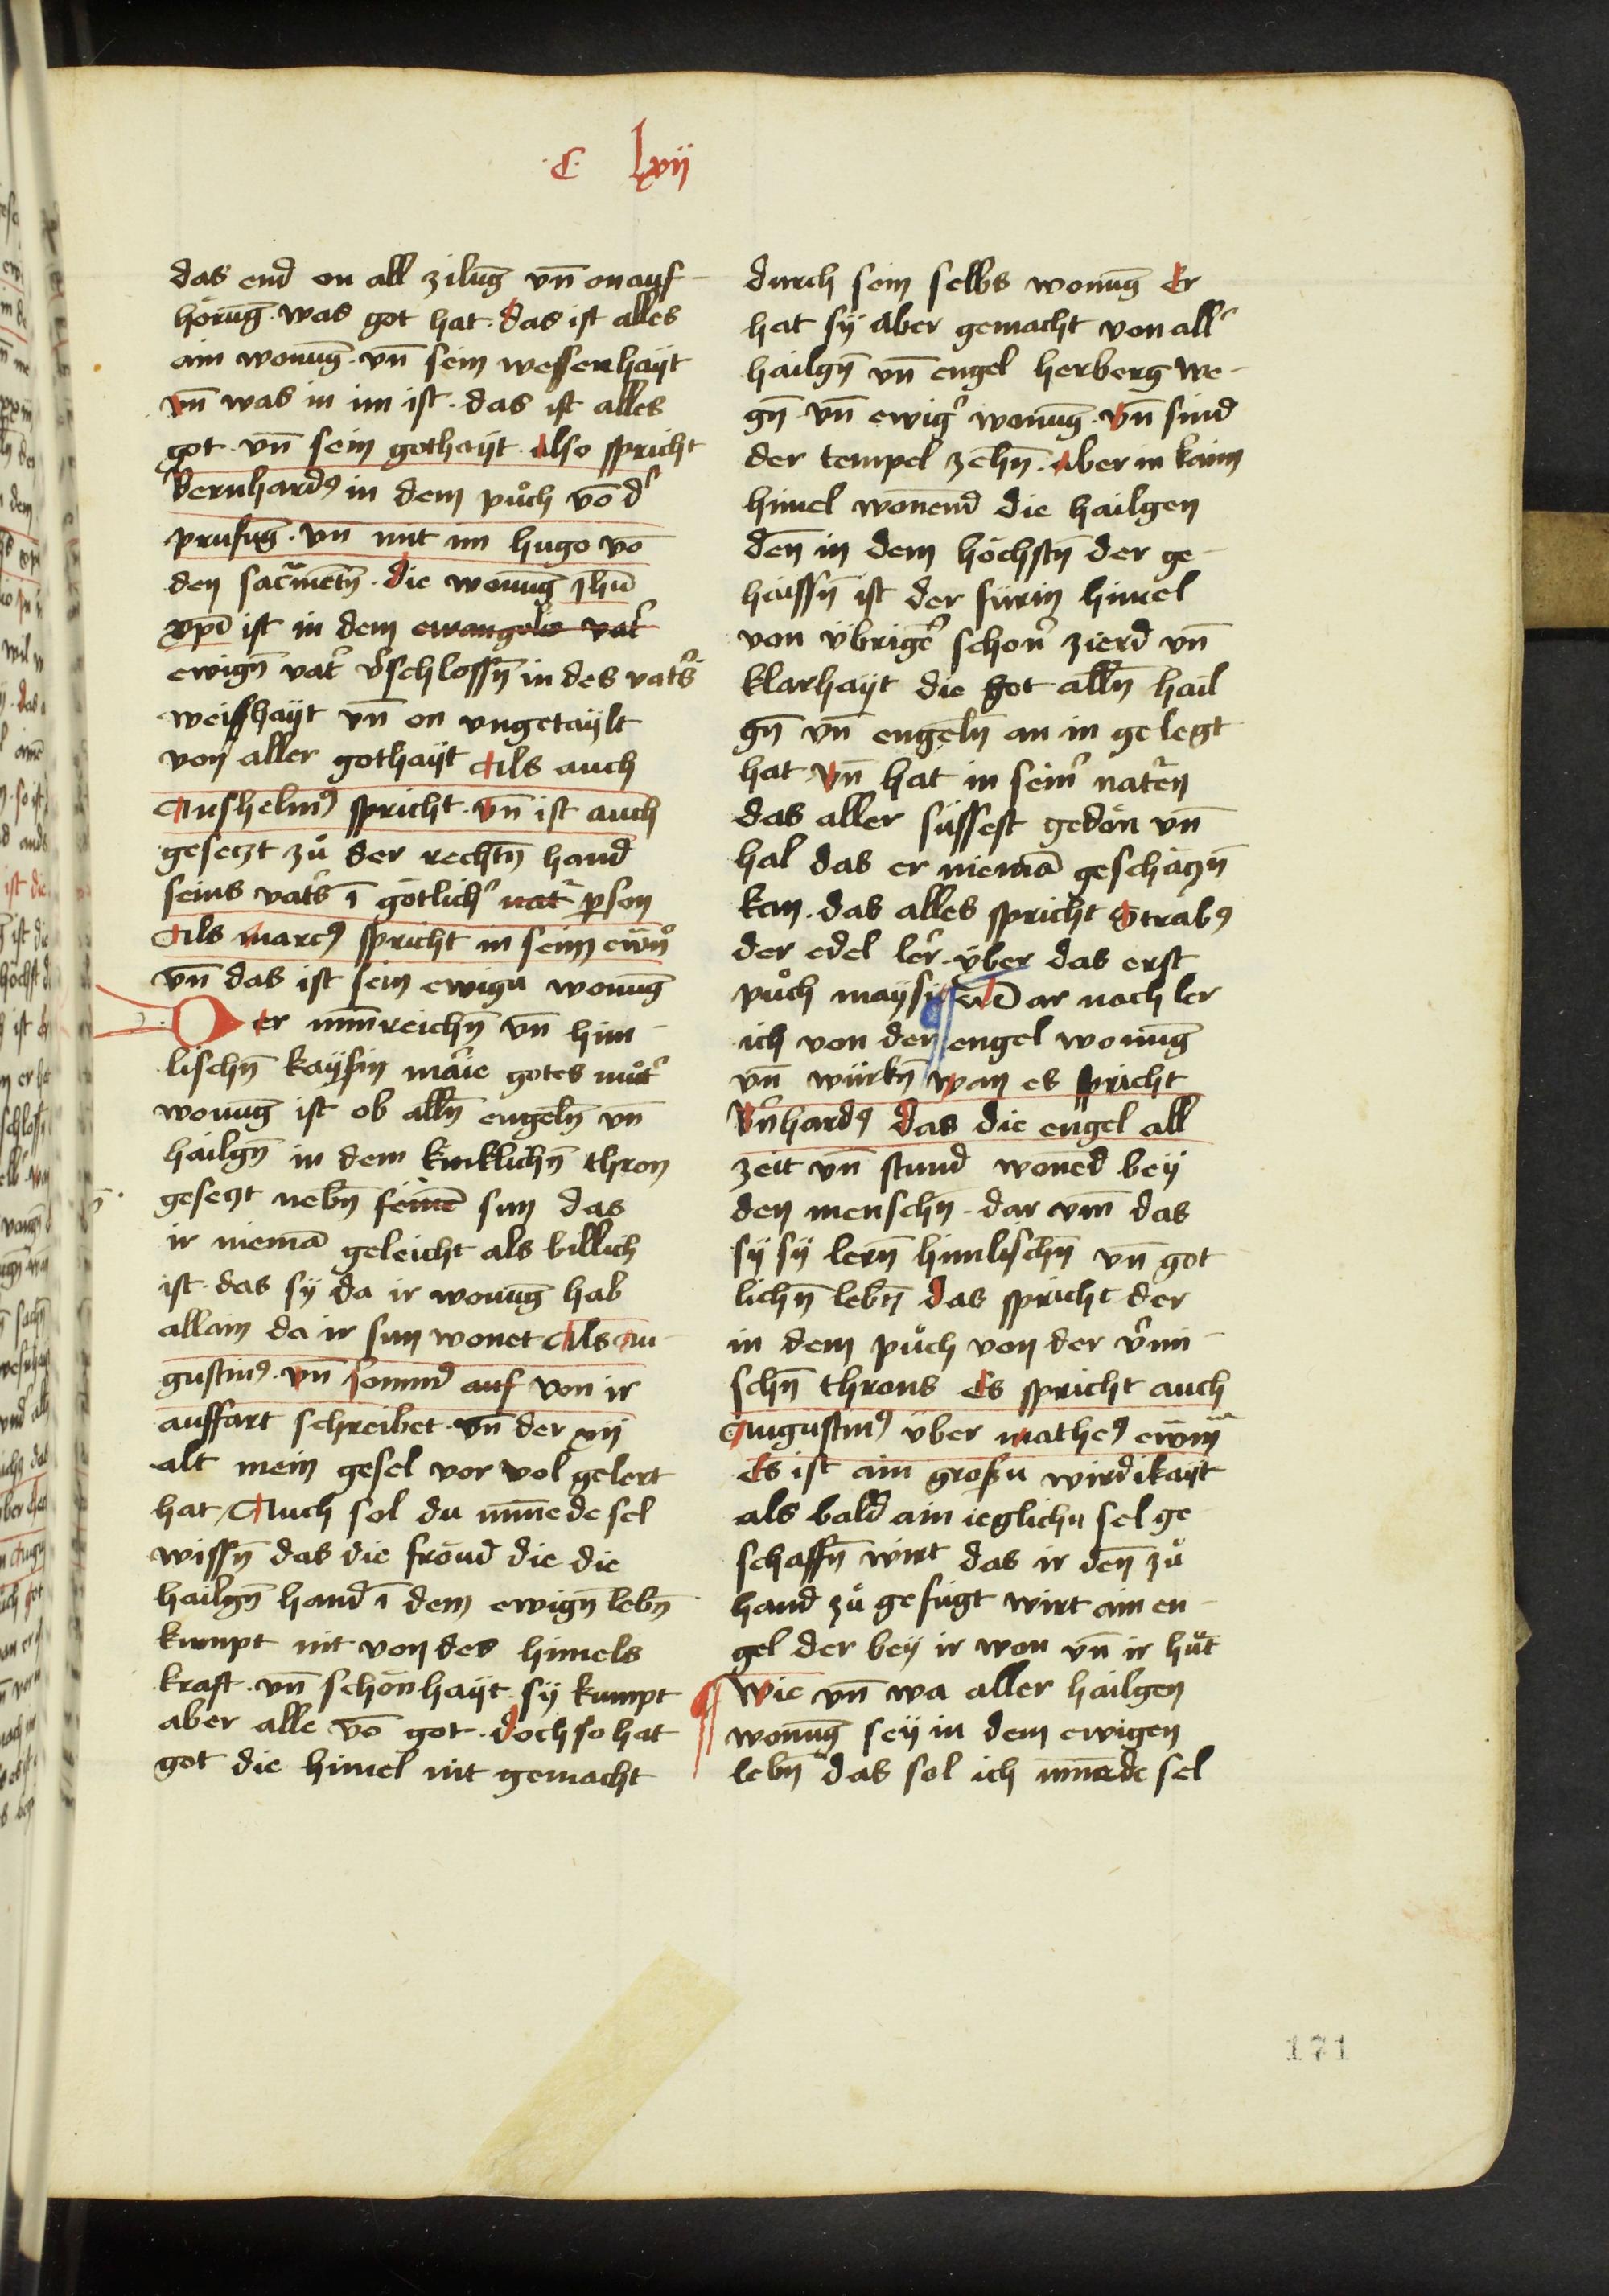 ·C· lxvij
das end on all zilūg vn̄ on auf-
hörūg. was got hat. das ist alles
ain wonūg. vn̄ sein wessenhayt
vn̄ was in im ist. das ist alles
got. vn̄ sein gothayt. Also spricht
Bernhardꝰ in dem puͦch vō dˀ
prufūg. vn̄ mit im hugo vō
den sacramētn̄. die wonūg ihū
xp̄i ist in dem ewangelio vatˀ
ewign̄ vatˀ vˀschlossn̄ in des vatˀs
weishayt vn̄ on vngetaylt
von aller gothayt Als auch
Anshelmꝰ spricht. vn̄ ist auch
gesetzt zuͦ der rechtn̄ hand
seins vatˀs ī götlichˀ natˀ pson
Als marcꝰ spricht in seim ewn̄
vn̄ das ist sein ewign wonūg
Der minreichn̄ vn̄ him-
lischn̄ kaysin marie gotes muͦtˀ
wonūg ist ob alln̄ engeln̄ vn̄
hailgn̄ in dem kinklichn̄ thron
gesetzt nebn̄ seinē sun das
ir niemā geleicht als billich
ist. das sy da ir wonūg hab
allain da ir sun wonet Als Au-
gustinꝰ. vn̄ auf von ir
auffart schreibet. vn̄ der xij
alt mein gesel vor vol gelert
hat, Auch sol du minnede sel
wissn̄ das die fröud die die
hailgn̄ hand ī dem ewign̄ lebn̄
kumpt nit von des himels
kraft. vn̄ schönhayt. sy kumpt
aber alle vō got. doch so hat
got die himel nit gemacht
durch sein selbs wonūg Er
hat sy aber gemacht von allˀ
hailgn̄ vn̄ engel herberg we-
gn̄. vn̄ ewigˀ wonūg. vn̄ sind
der tempel zehn̄. Aber in kaim
himel wonend die hailgen
den̄ in dem höchstn̄ der ge-
haissn̄ ist der fürin himel
von übrigˀ schonˀ zierd vn̄
klarhayt die got alln̄ hail
gn̄ vn̄ engeln̄ an in gelegt
hat vn̄ hat in seinˀ naturen
das aller süssest gedön vn̄
hal das er niemā geschätzn̄
kan. das alles spricht Strabꝰ
der edel lerˀ. über das erst
puͦch Dar nach ler
ich von den engel wonūg
vn̄ würkn̄ wan es spricht
Bˀnhardꝰ das die engel all
zeit vn̄ stund woned bey
den menschn̄. dar vm̄ das
sy sy lern̄ himlischn̄ vn̄ got
lichn̄ lebn̄ das spricht der
in dem puͦch von der vˀmi-
schn̄ throns Es spricht auch
Augustinꝰ über matheꝰ ewm̄
Es ist ain großu wirdikayt
als bald ain ieglichu sel ge
schaffn̄ wirt das ir den̄ zuͦ
hand zuͦ gefügt wirt ain en-
gel der bey ir won vn̄ ir huͦt
Wie vn̄ wa aller hailgen
wonūg sey in dem ewigen
lebn̄ das sol ich minnede sel
171